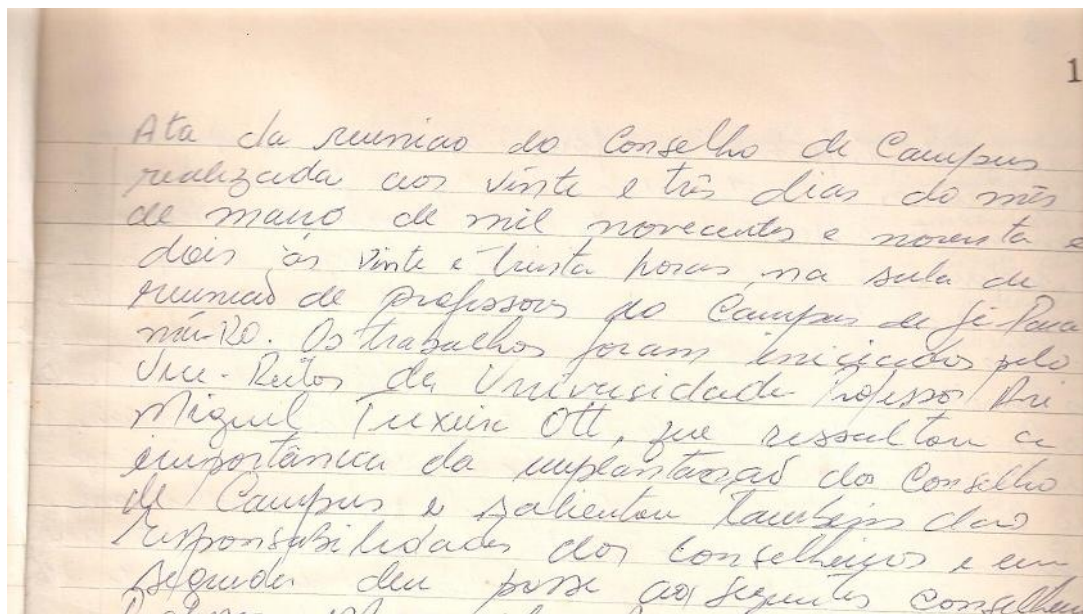 1
Ata da reunião do Conselho de Campus
realizada aos vinte e três dias do mês
de março de mil novecentos e noventa e
dois às vinte e trinta horas na sala de
reunião de professores do Campus de Ji-Para
ná-RO. Os trabalhos foram iniciados pelo
Vice-Reitor da Universidade Professor Ari
Miguel Teixeira Ott, que ressaltou a
importância da implantação do Conselho
de Campus e salientou também das
responsabilidades dos conselheiros e em
seguida deu posse aos seguintes conselhei